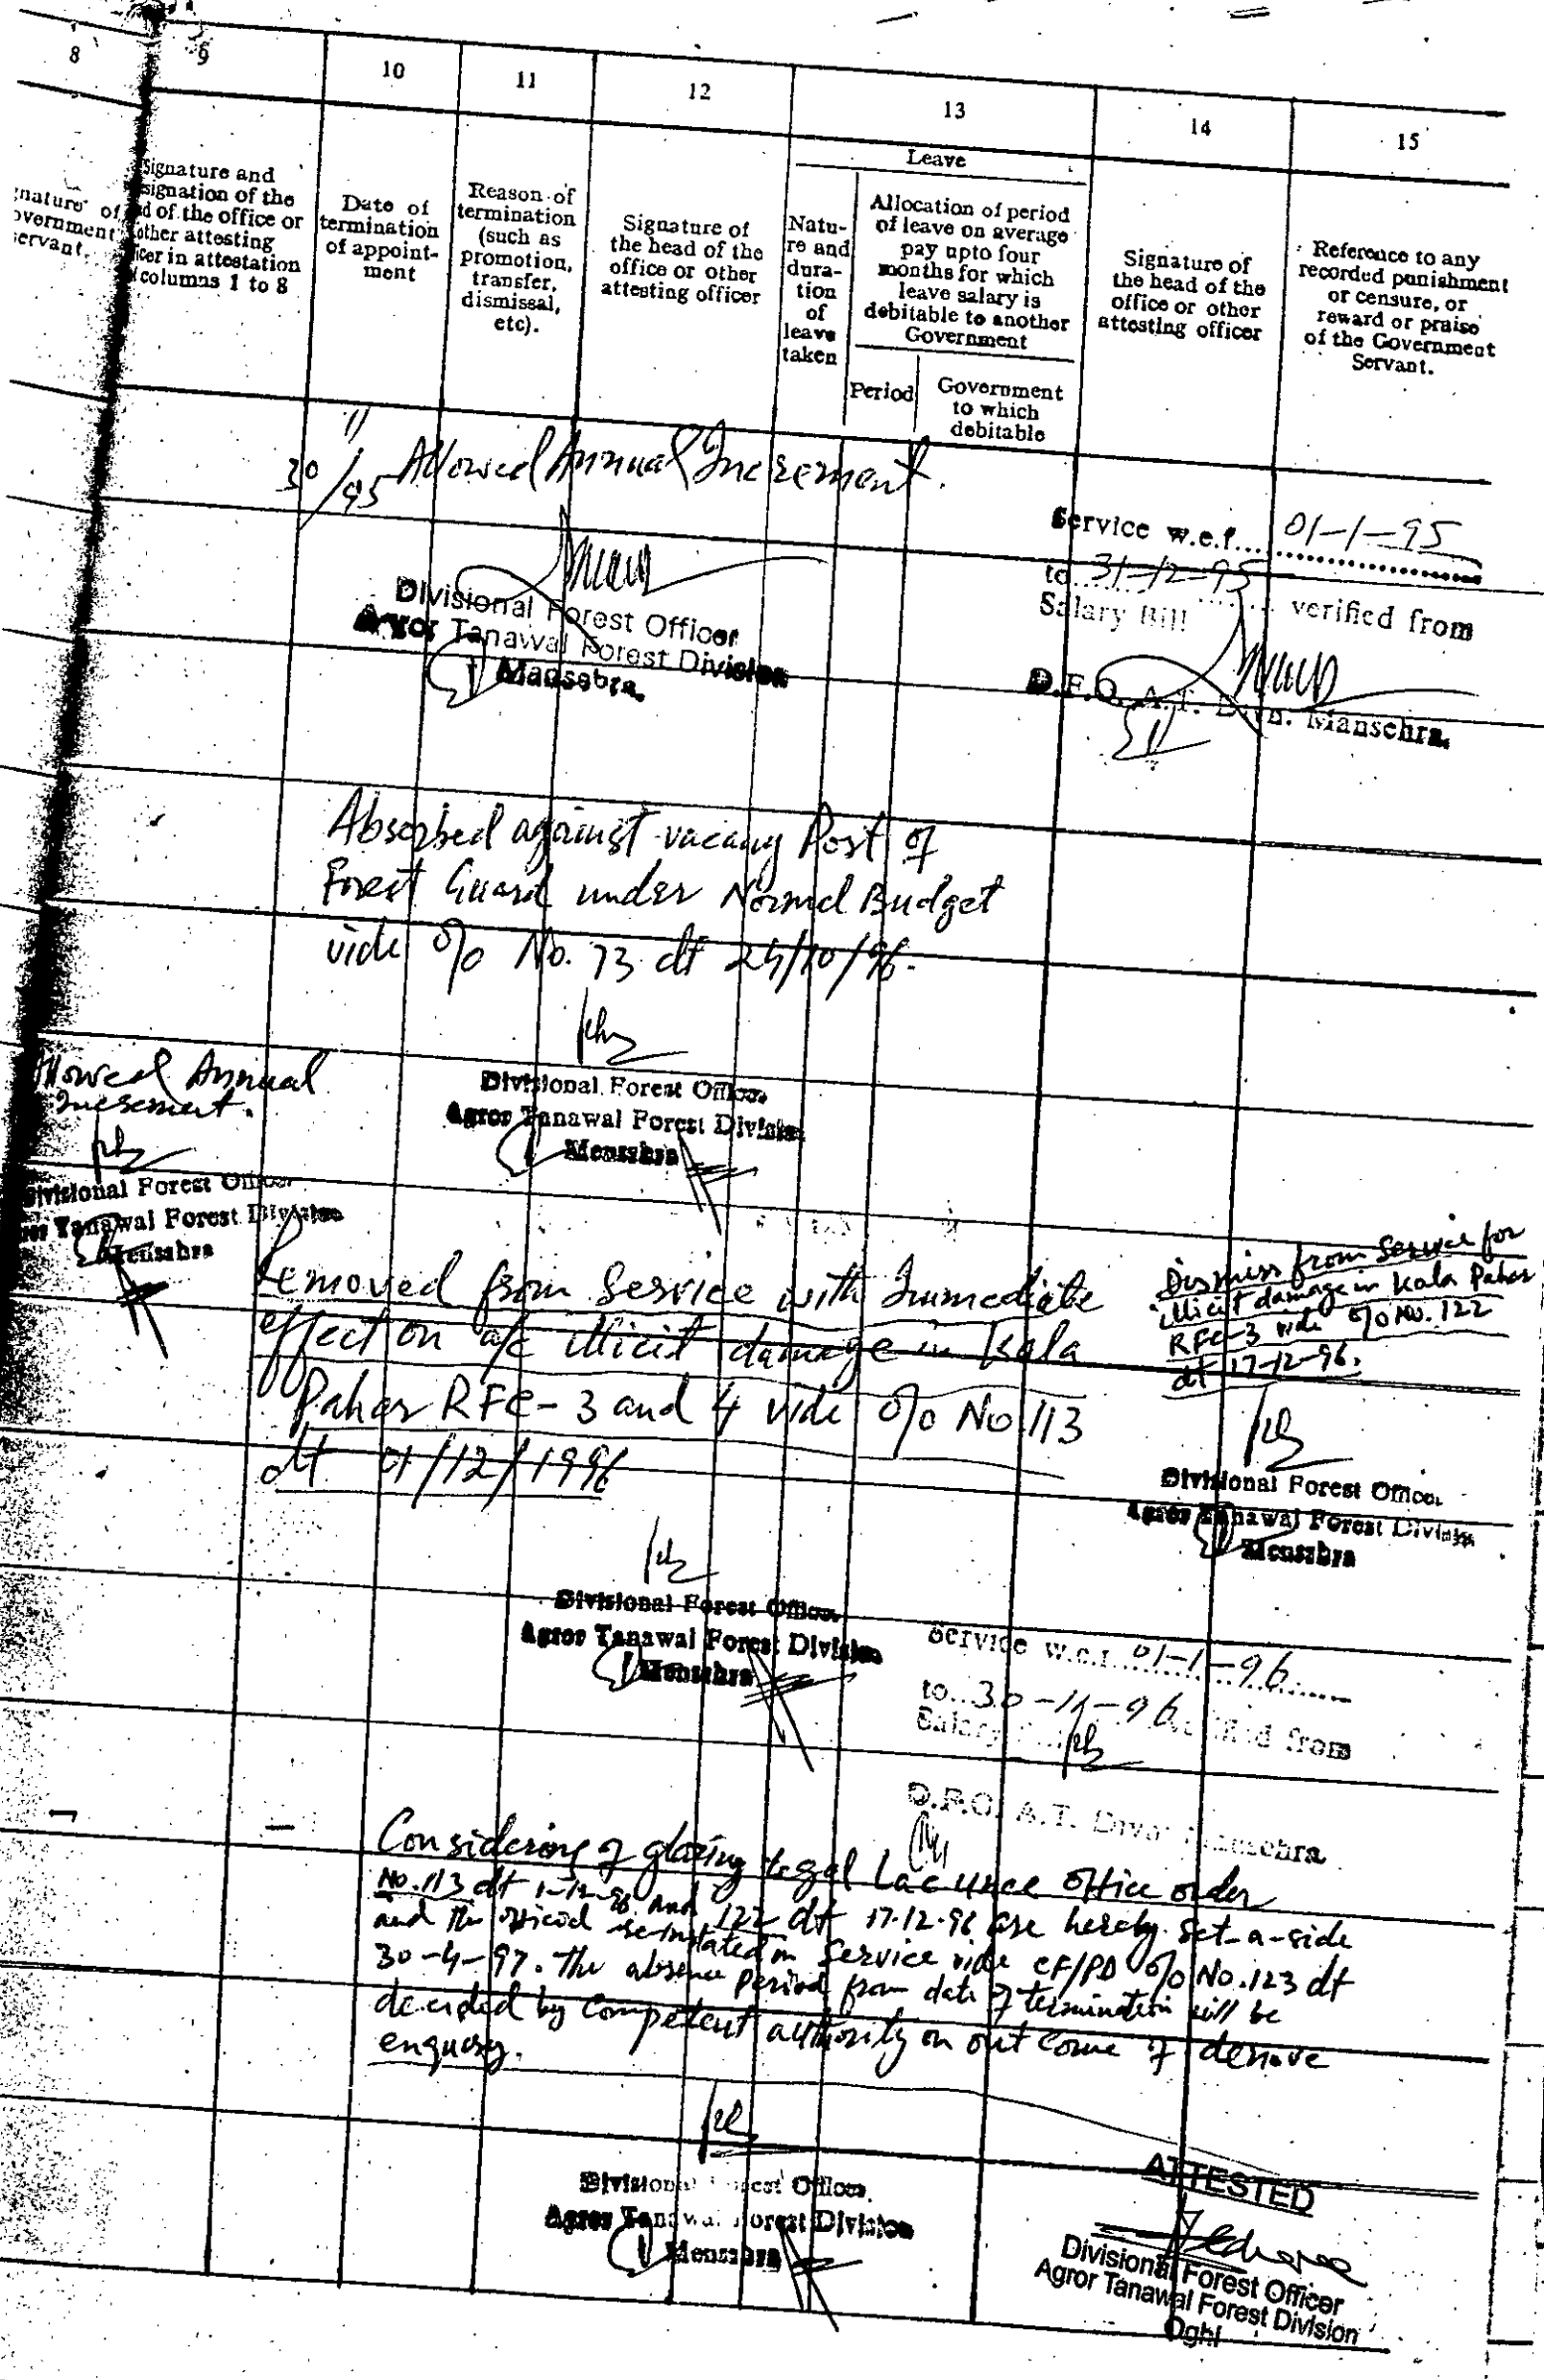 8
9
10
11
12
13
14
15
Signature and
signation of the
d of the office or
other attesting
cer in attestation
columns 1 to 8
nature of
overnment
ervant.
Date of
termination
of appoint-
ment
Reason of
termination
(such as
promotion,
transfer,
dismissal,
etc).
Signature of
the head of the
office or other
attesting officer
Leave
Natu-
re and
dura-
tion
of
leave
taken
Allocation of period
of leave on average
pay upto four
months for which
leave salary is
debitable to another
Government
Period
Government
to which
debitable
Signature of
the head of the
office or other
attesting officer
Reference to any
recorded punishment
or censure, or
reward or praise
of the Government
Servant.
30/11/95 Allowed Annual Increment.
Divisional Forest Officer
Agror Tanawal Forest Division
Mansehra.
Service w.e.f. 01-1-95
to 31-12-95
Salary Bill verified from
D.F.O. A.T. Mansehra.
Absorbed against vacany Post of
Forest Guard under Normal Budget
vide o/o No. 73 dt 24/10/96.
Divisional Forest Officer
Agror Tanawal Forest Division
Mensehra
Allowed Annual
Increment.
Divisional Forest Officer
Tanawal Forest Division
Mensehra
Removed from Service with Immediate
effect on a/c illicit damage in Kala
Pahar RFC-3 and 4 vide o/o No 113
dt 01/12/1996
Dismiss from Service for
illicit damage in Kala Pahar
RFC-3 vide o/o No. 122
dt 17-12-96.
Divisional Forest Officer
Agror Tanawal Forest Division
Mensehra
Divisional Forest Officer
Agror Tanawal Forest Division
Mensehra
Service w.e.f. 01-1-96
to 30-11-96
Salary verified from
D.F.O. A.T. Mansehra
Considering of glaring legal Lacunae office order
No. 113 dt 1-12-96 and 122 dt 17-12-96 are hereby set-a-side
and the official re-instated in Service vide CF/PD o/o No. 123 dt
30-4-97. The absence period from date of termination will be
decided by competent authority on out come of denove
enquiry.
Divisional Forest Officer
Agror Tanawal Forest Division
Mensehra
ATTESTED
Divisional Forest Officer
Agror Tanawal Forest Division
Oghi